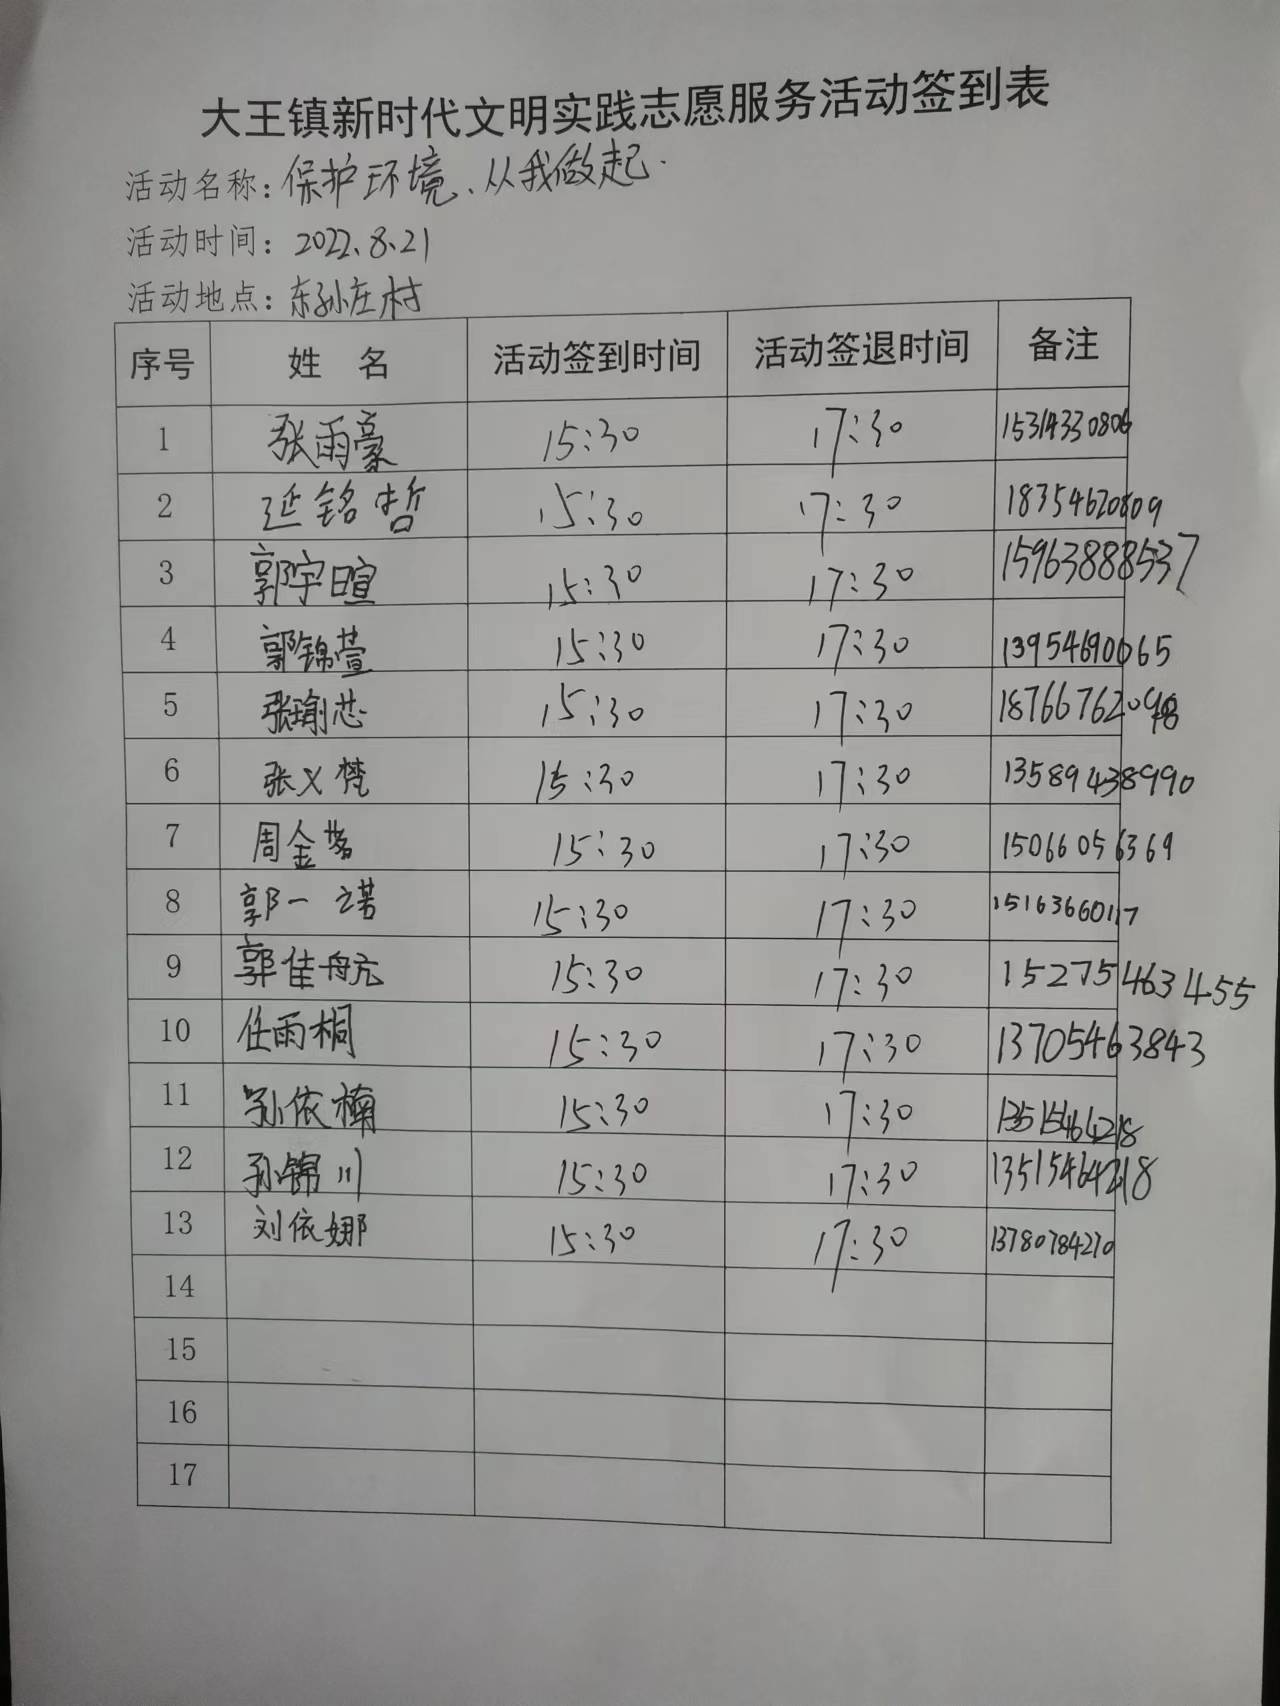 大王镇新时代文明实践志愿服务活动签到表
活动名称: 保护环境、从我做起.
活动时间: 2022.8.21
活动地点: 东孙庄村
序号 姓 名 活动签到时间 活动签退时间 备注
1 张雨豪 15:30 17:30 15314330806
2 延铭哲 15:30 17:30 18354620809
3 郭宇暄 15:30 17:30 15963888537
4 郭锦萱 15:30 17:30 13954690065
5 张瑜芯 15:30 17:30 18766762098
6 张义梵 15:30 17:30 13589438990
7 周金 15:30 17:30 15066056369
8 郭一诺 15:30 17:30 15163660117
9 郭佳航 15:30 17:30 15275463455
10 任雨桐 15:30 17:30 13705463843
11 孙依楠 15:30 17:30 13515464218
12 孙锦川 15:30 17:30 13515464218
13 刘依娜 15:30 17:30 13780784270
14
15
16
17